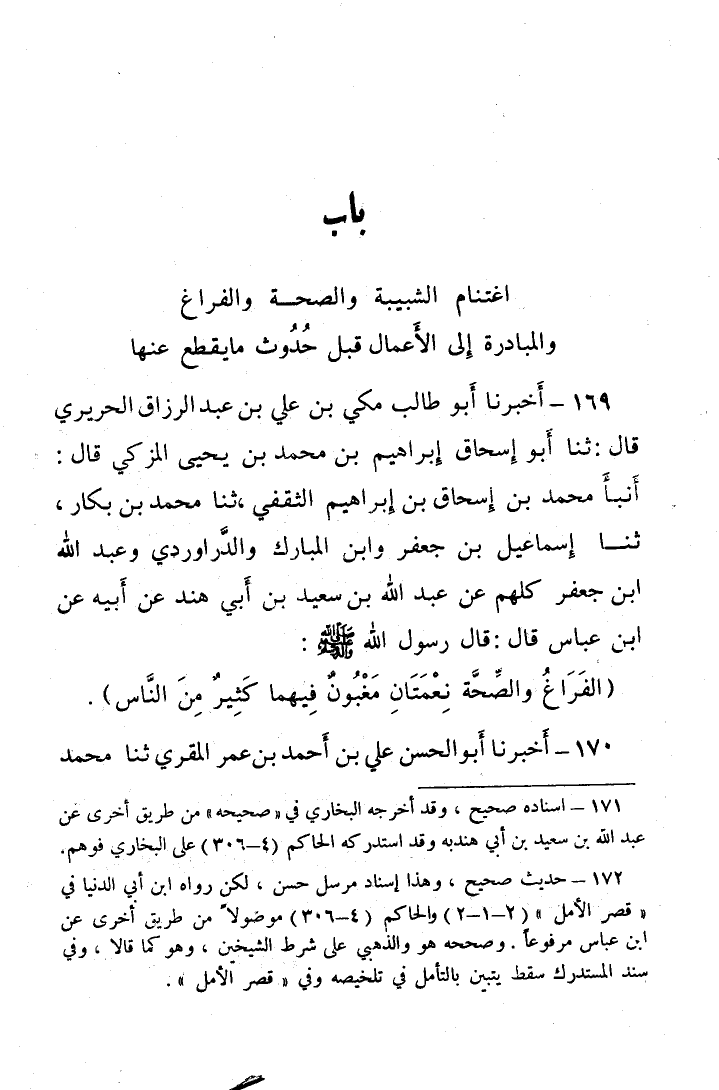 باب
اغتنام الشبيبة والصحـــة والفراغ
والمبادرة إلى الأَعمال قبل حُدُوث مايقطع عنها
١٦٩ – أَخبرنا أَبو طالب مكي بن علي بن عبد الرزاق الحريري
قال : ثنا أَبو إسحاق إبراهيم بن محمد بن يحيى المزكي قال :
أَنبأَ محمد بن إسحاق بن إبراهيم الثقفي ، ثنا محمد بن بكار ،
ثنـــا إسماعيل بن جعفر وابن المبارك والدَّراوردي وعبد الله
ابن جعفر كلهم عن عبد الله بن سعيد بن أَبي هند عن أَبيه عن
ابن عباس قال : قال رسول الله ﷺ :
(الفَرَاغُ والصِّحَّة نِعْمَتَانِ مَغْبُونٌ فِيهما كَثِيرٌ مِنَ النَّاس) .
١٧٠ – أَخبرنا أَبو الحسن علي بن أَحمد بن عمر المقري ثنا محمد
١٧١ – اسناده صحيح ، وقد أخرجه البخاري في « صحيحه » من طريق أخرى عن
عبد الله بن سعيد بن أبي هندبه وقد استدركه الحاكم (٤–٣٠٦) على البخاري فوهم.
١٧٢ – حديث صحيح ، وهذا إسناد مرسل حسن ، لكن رواه ابن أبي الدنيا في
« قصر الأمل » (٢–١–٢) والحاكم (٤–٣٠٦) موصولاً من طريق أخرى عن
ابن عباس مرفوعاً . وصححه هو والذهبي على شرط الشيخين ، وهو كما قالا ، وفي
سند المستدرك سقط يتبين بالتأمل في تلخيصه وفي « قصر الأمل » .